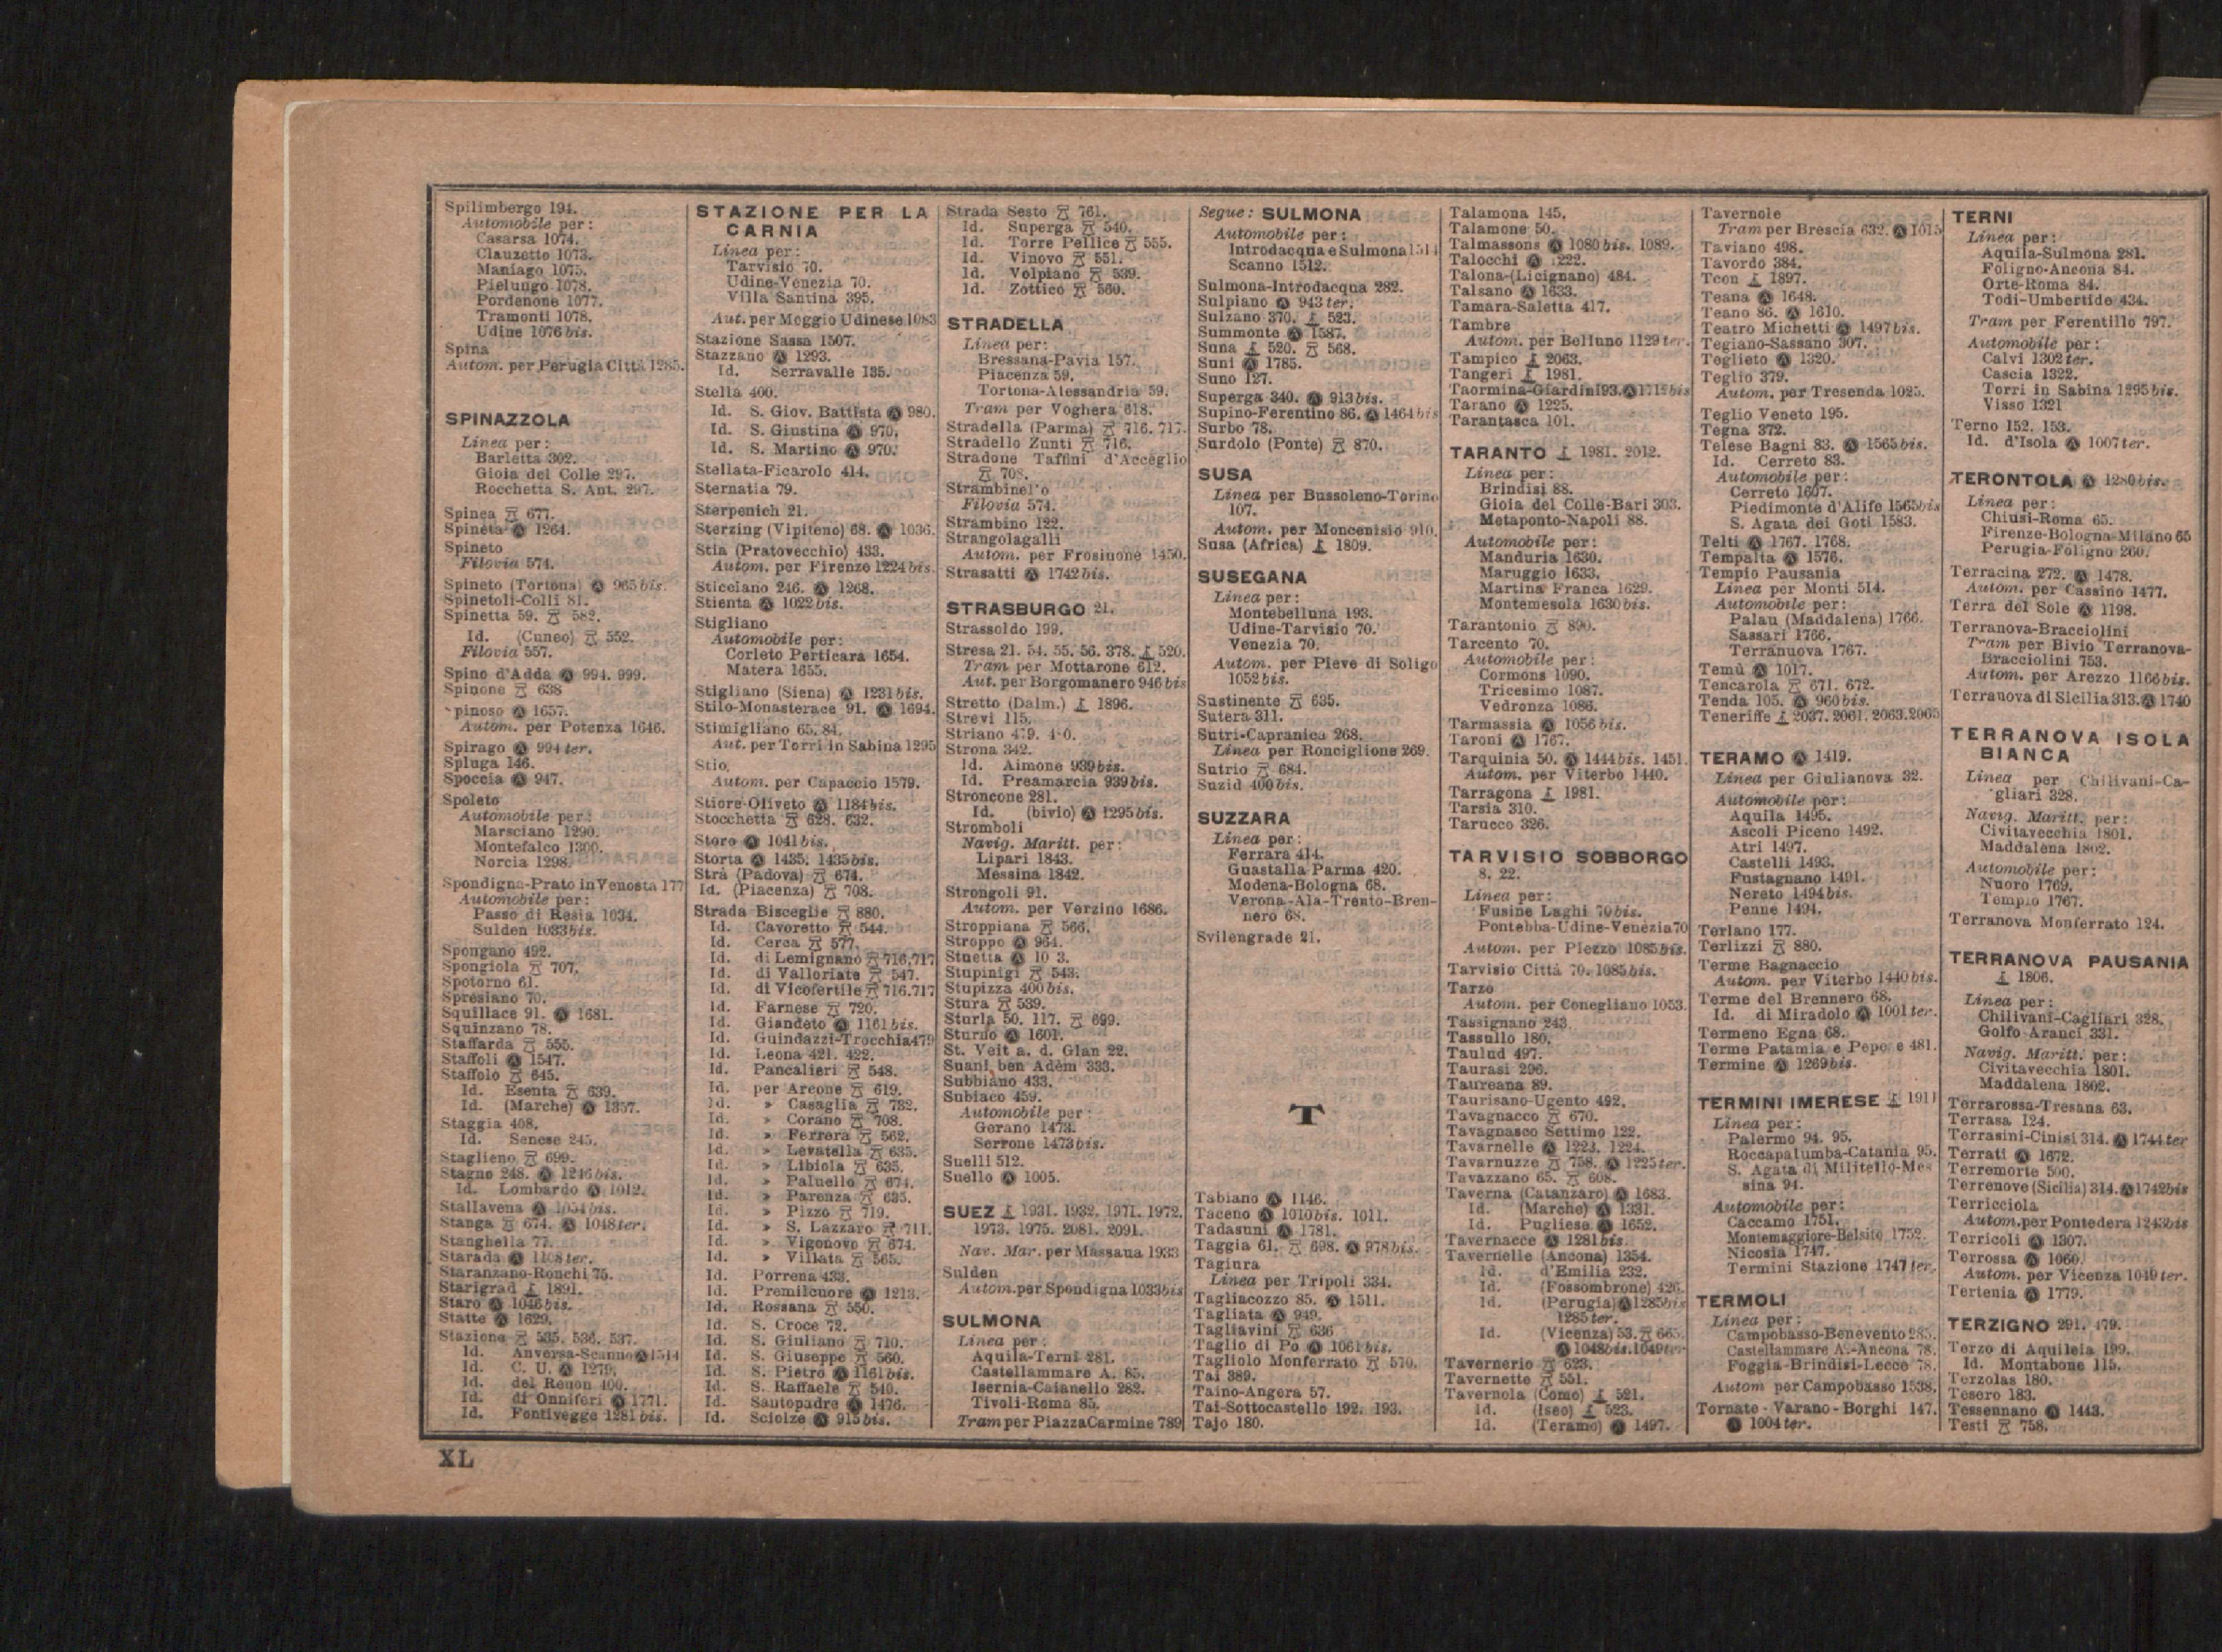 Spilimbergo 194.
Automobile per:
Casarsa 1074.
Clauzetto 1073.
Maniago 1075.
Pielungo 1078.
Pordenone 1077.
Tramonti 1078.
Udine 1076 bis.
Spina
Autom. per Perugia Città 1285.
SPINAZZOLA
Linea per:
Barletta 302.
Gioia del Colle 297.
Rocchetta S. Ant. 297.
Spinea 677.
Spineta 1264.
Spineto
Filovia 574.
Spineto (Tortona) 965 bis.
Spinetoli-Colli 81.
Spinetta 59. 582.
Id. (Cuneo) 552.
Filovia 557.
Spino d'Adda 994. 999.
Spinone 638
pinoso 1657.
Autom. per Potenza 1646.
Spirago 994 ter.
Spluga 146.
Spoccia 947.
Spoleto
Automobile per:
Marsciano 1290.
Montefalco 1300.
Norcia 1298.
Spondigna-Prato in Venosta 177
Automobile per:
Passo di Resia 1034.
Sulden 1033 bis.
Spongano 492.
Spongiola 707.
Spotorno 61.
Spresiano 70.
Squillace 91. 1681.
Squinzano 78.
Staffarda 555.
Staffoli 1547.
Staffolo 645.
Id. Esenta 639.
Id. (Marche) 1357.
Staggia 408.
Id. Senese 245.
Staglieno 699.
Stagno 248. 1246 bis.
Id. Lombardo 1012.
Stallavena 1054 bis.
Stanga 674. 1048 ter.
Stanghella 77.
Starada 1108 ter.
Staranzano-Ronchi 75.
Starigrad 1891.
Staro 1046 bis.
Statte 1629.
Stazione 535. 536. 537.
Id. Anversa-Scanno 1514
Id. C. U. 1279.
Id. del Renon 400.
Id. di Onniferi 1771.
Id. Fontivegge 1281 bis.
STAZIONE PER LA
CARNIA
Linea per:
Tarvisio 70.
Udine-Venezia 70.
Villa Santina 395.
Aut. per Moggio Udinese 1083
Stazione Sassa 1507.
Stazzano 1293.
Id. Serravalle 135.
Stella 400.
Id. S. Giov. Battista 980.
Id. S. Giustina 970.
Id. S. Martino 970.
Stellata-Ficarolo 414.
Sternatia 79.
Sterpenich 21.
Sterzing (Vipiteno) 68. 1036.
Stia (Pratovecchio) 433.
Autom. per Firenze 1224 bis.
Sticciano 246. 1268.
Stienta 1022 bis.
Stigliano
Automobile per:
Corleto Perticara 1654.
Matera 1655.
Stigliano (Siena) 1231 bis.
Stilo-Monasterace 91. 1694.
Stimigliano 65. 84.
Aut. per Torri in Sabina 1295
Stio
Autom. per Capaccio 1579.
Stiore-Oliveto 1184 bis.
Stocchetta 628. 632.
Storo 1041 bis.
Storta 1435. 1435 bis.
Strà (Padova) 674.
Id. (Piacenza) 708.
Strada Bisceglie 880.
Id. Cavoretto 544.
Id. Cerca 577.
Id. di Lemignano 716.717
Id. di Valloriate 547.
Id. di Vicofertile 716.717
Id. Farnese 720.
Id. Giandeto 1161 bis.
Id. Guindazzi-Trocchia 479
Id. Leona 421. 422.
Id. Pancalieri 548.
Id. per Arcone 619.
Id. » Casaglia 782.
Id. » Corano 708.
Id. » Ferrera 562.
Id. » Levatella 635.
Id. » Libiola 635.
Id. » Paluello 674.
Id. » Parenza 635.
Id. » Pizzo 719.
Id. » S. Lazzaro 711.
Id. » Vigonovo 674.
Id. » Villata 565.
Id. Porrena 433.
Id. Premilcuore 1213.
Id. Rossana 550.
Id. S. Croce 72.
Id. S. Giuliano 710.
Id. S. Giuseppe 560.
Id. S. Pietro 1161 bis.
Id. S. Raffaele 540.
Id. Santopadre 1476.
Id. Sciolze 915 bis.
Strada Sesto 761.
Id. Superga 540.
Id. Torre Pellice 555.
Id. Vinovo 551.
Id. Volpiano 539.
Id. Zottico 560.
STRADELLA
Linea per:
Bressana-Pavia 157.
Piacenza 59.
Tortona-Alessandria 59.
Tram per Voghera 618.
Stradella (Parma) 716. 717.
Stradello Zunti 716.
Stradone Taffini d'Acceglio
708.
Strambinello
Filovia 574.
Strambino 122.
Strangolagalli
Autom. per Frosinone 1450.
Strasatti 1742 bis.
STRASBURGO 21.
Strassoldo 199.
Stresa 21. 54. 55. 56. 378. 520.
Tram per Mottarone 612.
Aut. per Borgomanero 946 bis
Stretto (Dalm.) 1896.
Strevi 115.
Striano 479.
Strona 342.
Id. Aimone 939 bis.
Id. Preamarcia 939 bis.
Stroncone 281.
Id. (bivio) 1295 bis.
Stromboli
Navig. Maritt. per:
Lipari 1843.
Messina 1842.
Strongoli 91.
Autom. per Verzino 1686.
Stroppiana 566.
Stroppo 964.
Stuetta
Stupinigi 543.
Stupizza 400 bis.
Stura 539.
Sturla 50. 117. 699.
Sturno 1601.
St. Veit a. d. Glan 22.
Suani ben Adem 333.
Subbiano 433.
Subiaco 459.
Automobile per:
Gerano 1473.
Serrone 1473 bis.
Suelli 512.
Suello 1005.
SUEZ 1931. 1932. 1971. 1972.
1973. 1975. 2081. 2091.
Nav. Mar. per Massaua 1933
Sulden
Autom. per Spondigna 1033 bis
SULMONA
Linea per:
Aquila-Terni 281.
Castellammare A. 85.
Isernia-Caianello 282.
Tivoli-Roma 85.
Tram per Piazza Carmine 789
Segue: SULMONA
Automobile per:
Introdacqua e Sulmona 1514
Scanno 1512.
Sulmona-Introdacqua 282.
Sulpiano 943 ter.
Sulzano 370. 523.
Summonte 1587.
Suna 520. 568.
Suni 1785.
Suno 127.
Superga 340. 913 bis.
Supino-Ferentino 86. 1464 bis
Surbo 78.
Surdolo (Ponte) 870.
SUSA
Linea per Bussoleno-Torino
107.
Autom. per Moncenisio 910.
Susa (Africa) 1809.
SUSEGANA
Linea per:
Montebelluna 193.
Udine-Tarvisio 70.
Venezia 70.
Autom. per Pieve di Soligo
1052 bis.
Sustinente 635.
Sutera 311.
Sutri-Capranica 268.
Linea per Ronciglione 269.
Sutrio 684.
Suzid 400 bis.
SUZZARA
Linea per:
Ferrara 414.
Guastalla Parma 420.
Modena-Bologna 68.
Verona-Ala-Trento-Bren-
nero 68.
Svilengrade 21.
T
Tabiano 1146.
Taceno 1010 bis. 1011.
Tadasuni 1781.
Taggia 61. 698. 978 bis.
Tagiura
Linea per Tripoli 334.
Tagliacozzo 85. 1511.
Tagliata 949.
Tagliavini 636
Taglio di Po 1061 bis.
Tagliolo Monferrato 570.
Tai 389.
Taino-Angera 57.
Tai-Sottocastello 192. 193.
Tajo 180.
Talamona 145.
Talamone 50.
Talmassons 1080 bis. 1089.
Talocchi 1222.
Talona-(Licignano) 484.
Talsano 1633.
Tamara-Saletta 417.
Tambre
Autom. per Belluno 1129 ter.
Tampico 2063.
Tangeri 1981.
Taormina-Giardini 93. 1712 bis
Tarano 1225.
Tarantasca 101.
TARANTO 1981. 2012.
Linea per:
Brindisi 88.
Gioia del Colle-Bari 303.
Metaponto-Napoli 88.
Automobile per:
Manduria 1630.
Maruggio 1633.
Martina Franca 1629.
Montemesola 1630 bis.
Tarantonio 890.
Tarcento 70.
Automobile per:
Cormons 1090.
Tricesimo 1087.
Vedronza 1086.
Tarmassia 1056 bis.
Taroni 1767.
Tarquinia 50. 1444 bis. 1451.
Autom. per Viterbo 1440.
Tarragona 1981.
Tarsia 310.
Tarucco 326.
TARVISIO SOBBORGO
8. 22.
Linea per:
Fusine Laghi 70 bis.
Pontebba-Udine-Venezia 70
Autom. per Plezzo 1085 bis.
Tarvisio Città 70. 1085 bis.
Tarzo
Autom. per Conegliano 1053.
Tassignano 243.
Tassullo 180.
Taulud 497.
Taurasi 296.
Taureana 89.
Taurisano-Ugento 492.
Tavagnacco 670.
Tavagnasco Settimo 122.
Tavarnelle 1223. 1224.
Tavarnuzze 758. 1225 ter.
Tavazzano 65. 608.
Taverna (Catanzaro) 1683.
Id. (Marche) 1331.
Id. Pugliese 1652.
Tavernacce 1281 bis.
Tavernelle (Ancona) 1354.
Id. d'Emilia 232.
Id. (Fossombrone) 426.
Id. (Perugia) 1285 bis
1285 ter.
Id. (Vicenza) 53. 665.
1048 bis. 1049 ter
Tavernerio 623.
Tavernette 551.
Tavernola (Como) 521.
Id. (Iseo) 523.
Id. (Teramo) 1497.
Tavernole
Tram per Brescia 632. 1015
Taviano 498.
Tavordo 384.
Tcon 1897.
Teana 1648.
Teano 86. 1610.
Teatro Michetti 1497 bis.
Tegiano-Sassano 307.
Teglieto 1320.
Teglio 379.
Autom. per Tresenda 1025.
Teglio Veneto 195.
Tegna 372.
Telese Bagni 83. 1565 bis.
Id. Cerreto 83.
Automobile per:
Cerreto 1607.
Piedimonte d'Alife 1565 bis
S. Agata dei Goti 1583.
Telti 1767. 1768.
Tempalta 1576.
Tempio Pausania
Linea per Monti 514.
Automobile per:
Palau (Maddalena) 1766.
Sassari 1766.
Terranuova 1767.
Temù 1017.
Tencarola 671. 672.
Tenda 105. 960 bis.
Teneriffe 2037. 2061. 2063. 2065
TERAMO 1419.
Linea per Giulianova 32.
Automobile per:
Aquila 1495.
Ascoli Piceno 1492.
Atri 1497.
Castelli 1493.
Fustagnano 1491.
Nereto 1494 bis.
Penne 1494.
Terlano 177.
Terlizzi 880.
Terme Bagnaccio
Autom. per Viterbo 1440 bis.
Terme del Brennero 68.
Id. di Miradolo 1001 ter.
Termeno Egna 68.
Terme Patamia e Pepe e 481.
Termine 1269 bis.
TERMINI IMERESE 1911
Linea per:
Palermo 94. 95.
Roccapalumba-Catania 95.
S. Agata di Militello-Mes
sina 94.
Automobile per:
Caccamo 1751.
Montemaggiore-Belsito 1752.
Nicosia 1747.
Termini Stazione 1747 ter.
TERMOLI
Linea per:
Campobasso-Benevento 285.
Castellammare A.-Ancona 78.
Foggia-Brindisi-Lecce 78.
Autom per Campobasso 1538.
Tornate-Varano-Borghi 147.
1004 ter.
TERNI
Linea per:
Aquila-Sulmona 281.
Foligno-Ancona 84.
Orte-Roma 84.
Todi-Umbertide 434.
Tram per Ferentillo 797.
Automobile per:
Calvi 1302 ter.
Cascia 1322.
Torri in Sabina 1295 bis.
Visso 1321
Terno 152. 153.
Id. d'Isola 1007 ter.
TERONTOLA 1280 bis.
Linea per:
Chiusi-Roma 65.
Firenze-Bologna-Milano 65
Perugia-Foligno 260.
Terracina 272. 1478.
Autom. per Cassino 1477.
Terra del Sole 1198.
Terranova-Bracciolini
Tram per Bivio Terranova-
Bracciolini 753.
Autom. per Arezzo 1166 bis.
Terranova di Sicilia 313. 1740
TERRANOVA ISOLA
BIANCA
Linea per Chilivani-Ca-
gliari 328.
Navig. Maritt. per:
Civitavecchia 1801.
Maddalena 1802.
Automobile per:
Nuoro 1769.
Tempio 1767.
Terranova Monferrato 124.
TERRANOVA PAUSANIA
1806.
Linea per:
Chilivani-Cagliari 328.
Golfo Aranci 331.
Navig. Maritt. per:
Civitavecchia 1801.
Maddalena 1802.
Terrarossa-Tresana 63.
Terrasa 124.
Terrasini-Cinisi 314. 1744 ter
Terrati 1672.
Terremorte 500.
Terrenove (Sicilia) 314. 1742 bis
Terricciola
Autom. per Pontedera 1243 bis
Terricoli 1307.
Terrossa 1060.
Autom. per Vicenza 1049 ter.
Tertenia 1779.
TERZIGNO 291. 479.
Terzo di Aquileia 199.
Id. Montabone 115.
Terzolas 180.
Tesero 183.
Tessennano 1443.
Testi 758.
XL